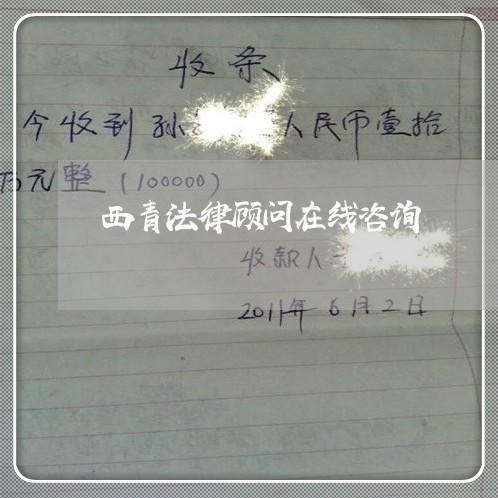 收条
今收到孙 人民币壹拾
万元整(100000)
西青法律顾问在线咨询
收款人
2011年6月2日